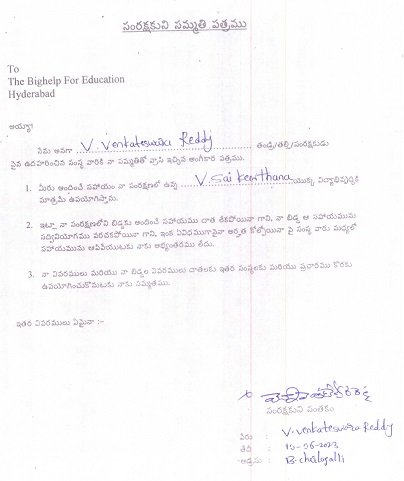 సంరక్షకుని సమ్మతి పత్రము
To
The Bighelp For Education
Hyderabad
అయ్యా!
నేను అనగా V. Venkateswara Reddy తండ్రి/తల్లి/సంరక్షకుడు
పైన ఉదహరించిన సంస్థ వారికి నా సమ్మతితో వ్రాసి ఇచ్చిన అంగీకార పత్రము.
1. మీరు అందించే సహాయం నా సంరక్షణలో ఉన్న V. Sai Keerthana యొక్క విద్యాభివృద్ధికి
మాత్రమే ఉపయోగిస్తాను.
2. ఇట్లా నా సంరక్షణలోని బిడ్డకు అందించే సహాయము దాత ఇవ్వకపోయినా గాని, నా బిడ్డ ఆ సహాయమును
సద్వినియోగము పరచకపోయినా గాని, ఇంక ఏవిధముగానైనా అర్హత కోల్పోయినా పై సంస్థ వారు మధ్యలో
సహాయమును ఆపివేయుటకు నాకు అభ్యంతరము లేదు.
3. నా వివరములు మరియు నా బిడ్డల వివరములు దాతలకు ఇతర సంస్థలకు మరియు ప్రచారము కొరకు
ఉపయోగించుకొనుటకు నాకు సమ్మతము.
ఇతర వివరములు ఏమైనా :-
సంరక్షకుని సంతకం
పేరు : V. Venkateswara Reddy
తేదీ : 10-06-2023
అడ్రసు :